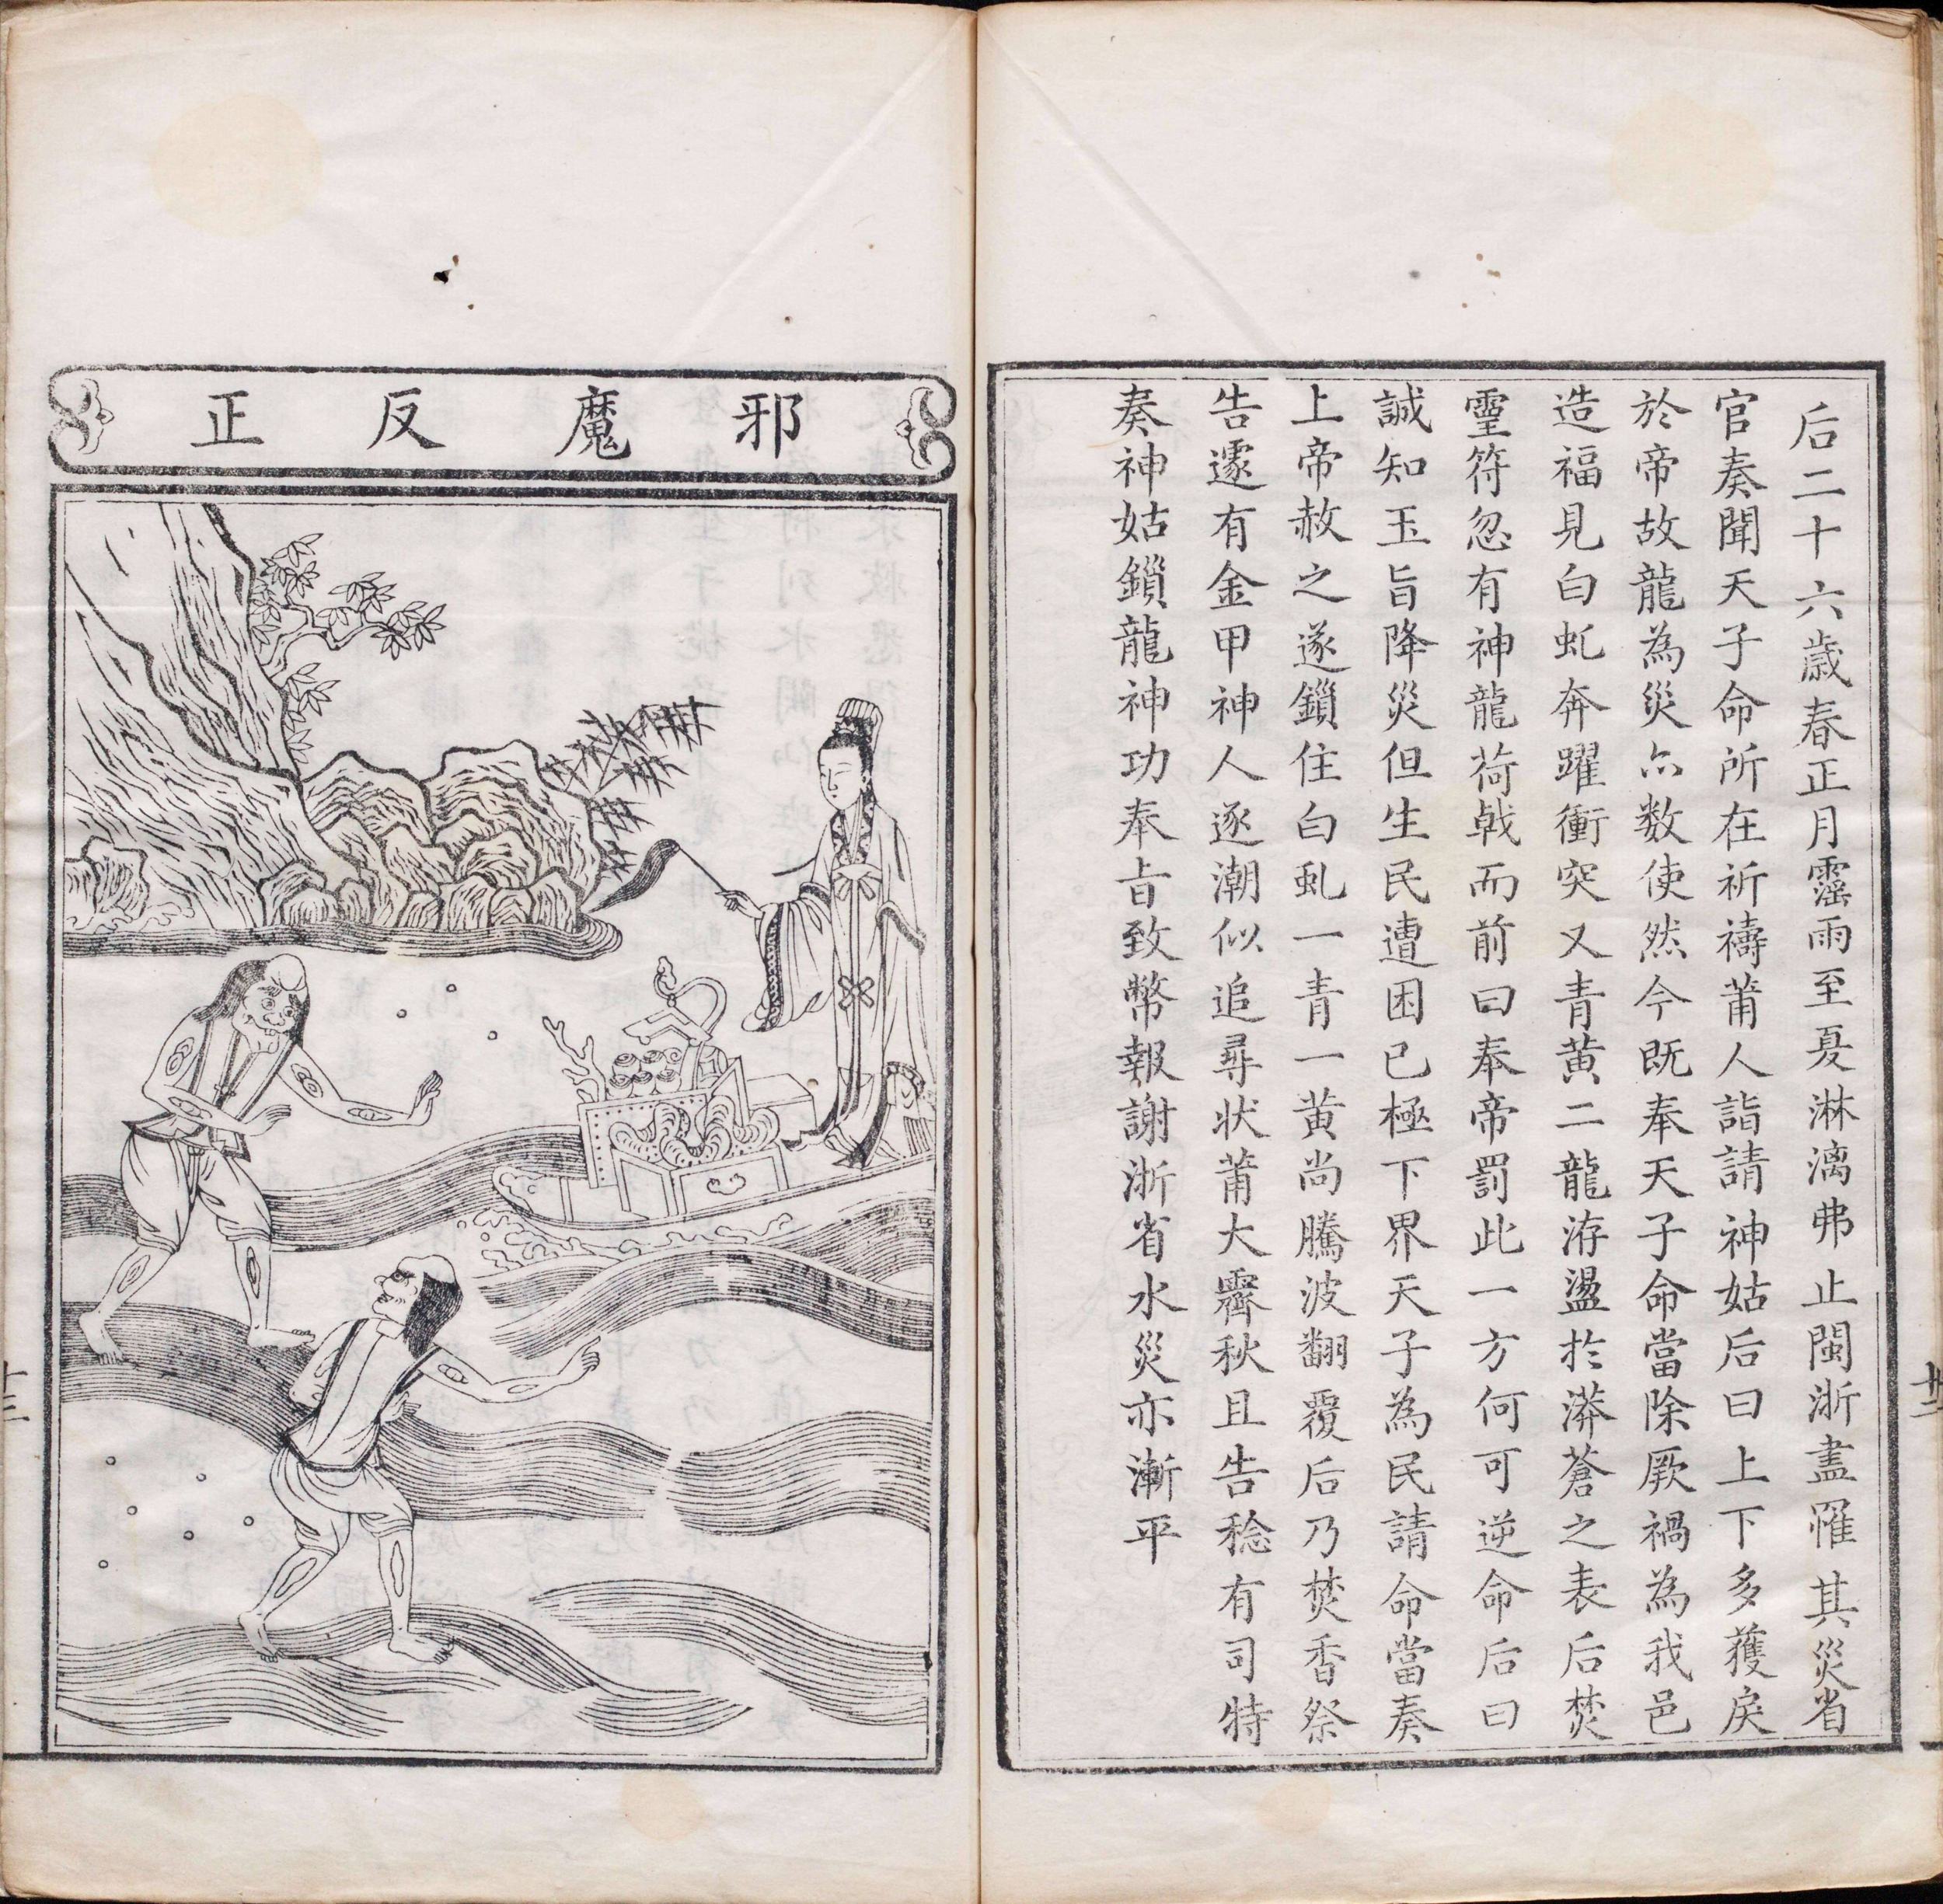 后二十六歳春正月霪雨至夏淋漓弗止閩浙盡罹其災省
官奏聞天子命所在祈禱莆人詣請神姑后曰上下多獲戾
於帝故龍為災亦数使然今既奉天子命當除厥禍為我邑
造福見白虬奔躍衝突又青黄二龍洊盪於漭蒼之表后焚
靈符忽有神龍荷戟而前曰奉帝罰此一方何可逆命后曰
誠知玉旨降災但生民遭困已極下界天子為民請命當奏
上帝赦之遂鎻住白虬一青一黄尚騰波翻覆后乃焚香祭
告遽有金甲神人逐潮似追尋状莆大霽秋且告稔有司特
奏神姑鎖龍神功奉㫖致幣報謝浙省水災亦漸平
十二
邪魔反正
十三